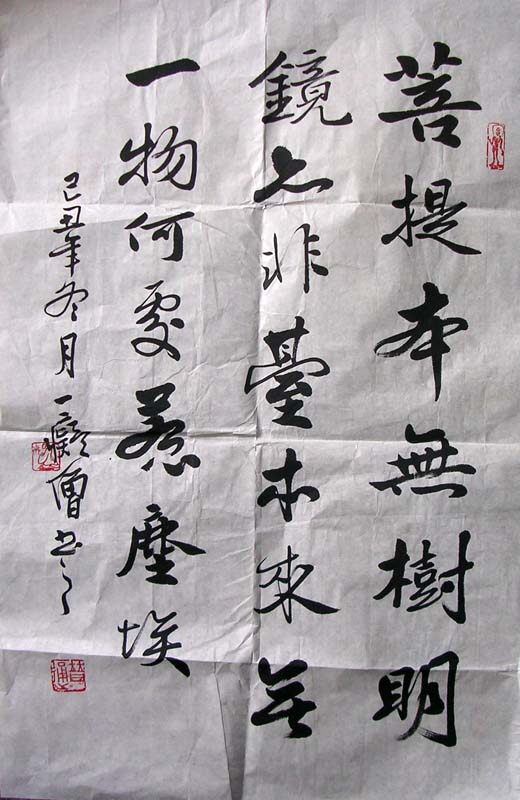 菩提本無樹明
鏡亦非臺本來無
一物何處惹塵埃
己丑年冬月一癡僧書之